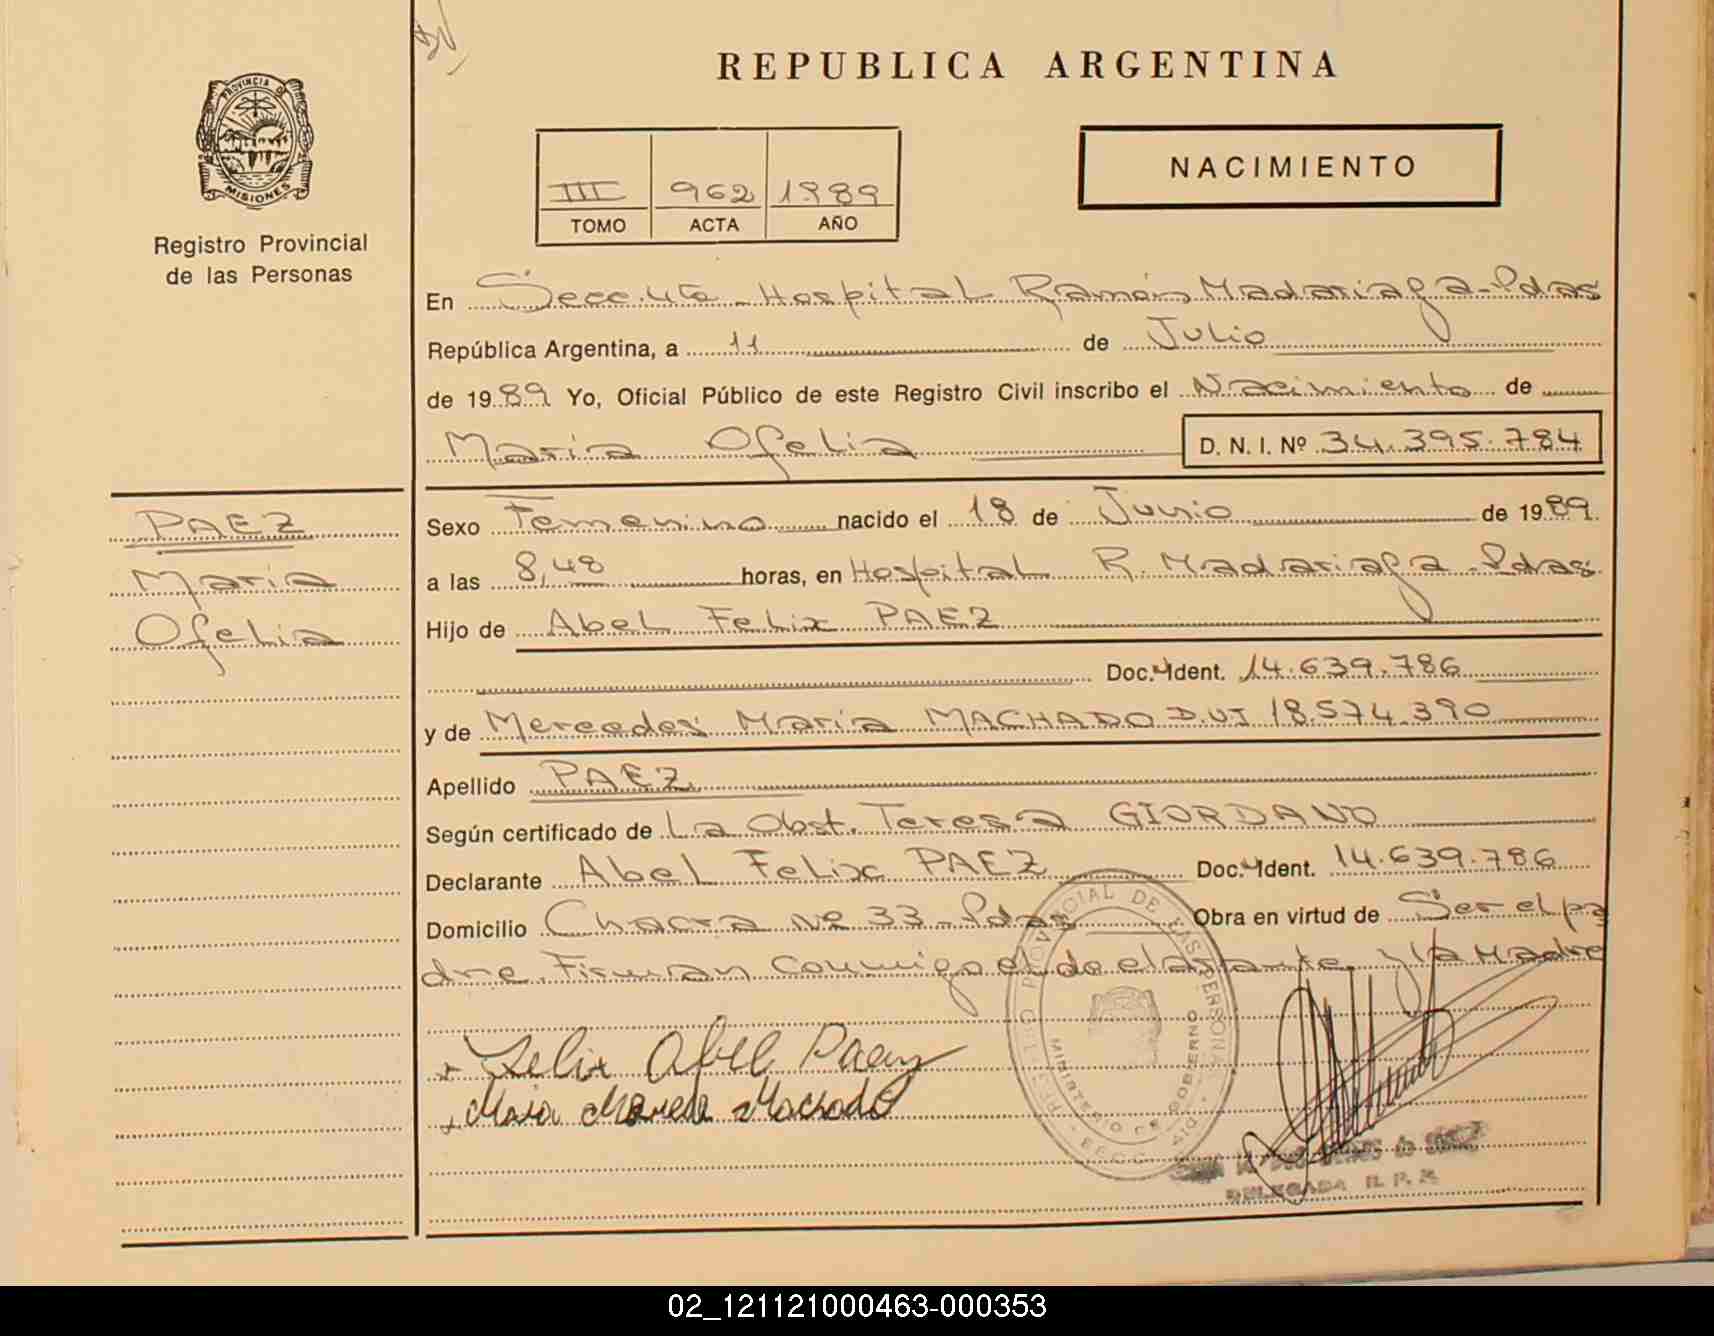 REPUBLICA ARGENTINA
PROVINCIA DE
MISIONES
Registro Provincial
de las Personas
III 962 1989
TOMO ACTA AÑO
NACIMIENTO
En Secc. 4ta - Hospital Ramón Madariaga - Pdas
República Argentina, a 11 de Julio
de 1989 Yo, Oficial Público de este Registro Civil inscribo el Nacimiento de
Maria Ofelia D. N. I. Nº 34.395.784
PAEZ
Maria
Ofelia
Sexo Femenino nacido el 18 de Junio de 1989
a las 8,48 horas, en Hospital R. Madariaga - Pdas
Hijo de Abel Felix PAEZ
Doc. Ident. 14.639.786
y de Mercedes Maria MACHADO D.U.I 18.574.390
Apellido PAEZ
Según certificado de La Obst. Teresa GIORDANO
Declarante Abel Felix PAEZ Doc. Ident. 14.639.786
Domicilio Chacra Nº 33 - Pdas Obra en virtud de Ser el pa
dre. Firman conmigo el declarante y la Madre
Felix Abel Paez
Machado
MINISTERIO DE GOBIERNO
DELEGADA R. P. P.
02_121121000463-000353